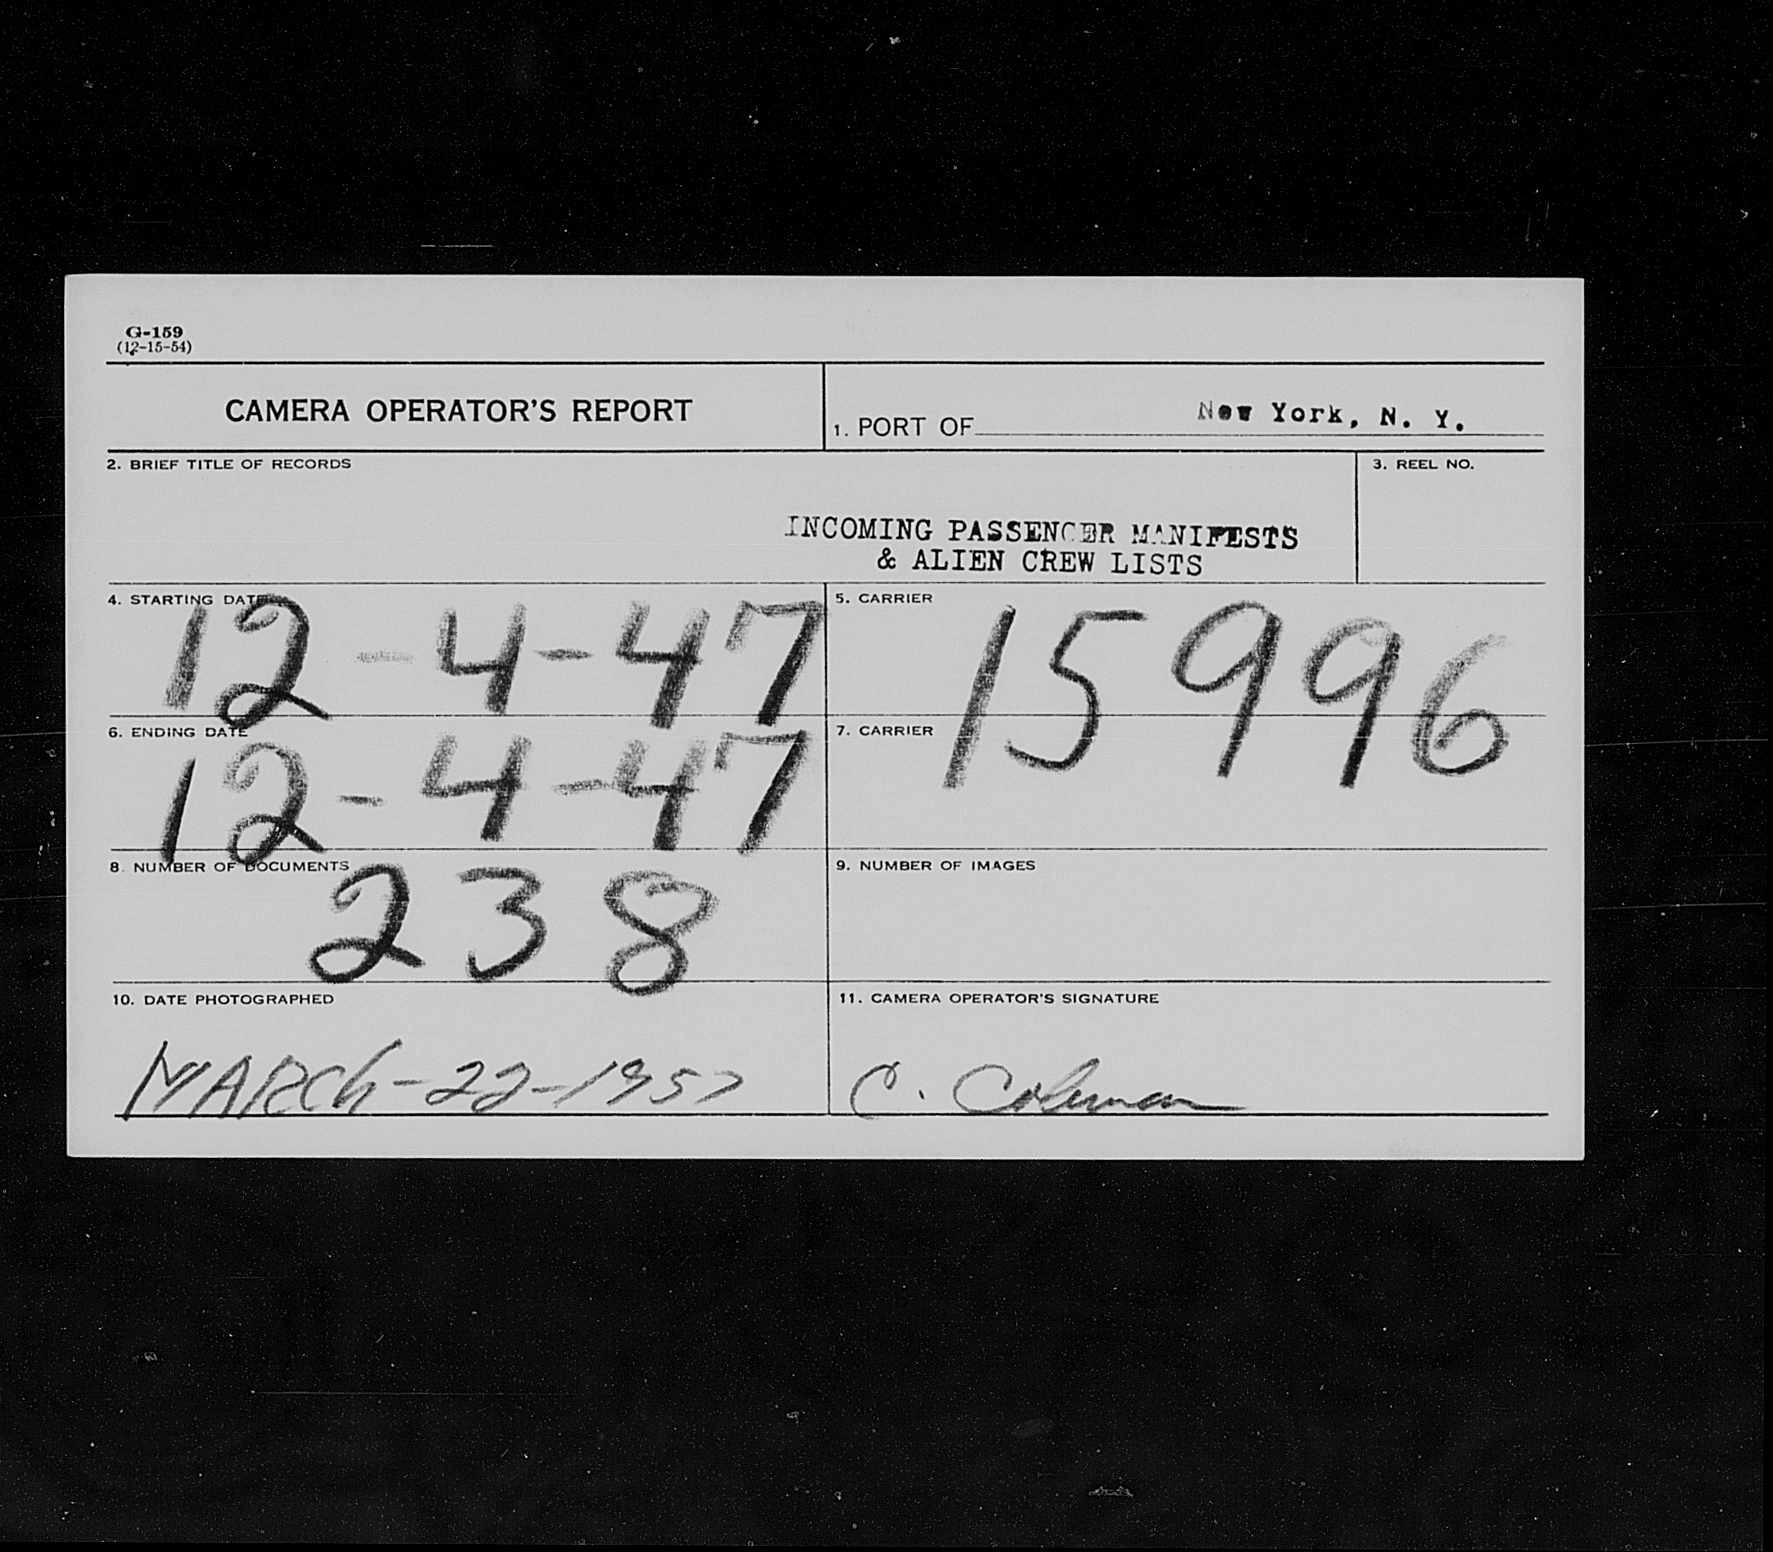 G-159
(12-15-54)
CAMERA OPERATOR'S REPORT
1. PORT OF New York, N. Y.
2. BRIEF TITLE OF RECORDS
3. REEL NO.
INCOMING PASSENGER MANIFESTS
& ALIEN CREW LISTS
4. STARTING DATE
12-4-47
5. CARRIER
15996
6. ENDING DATE
12-4-47
7. CARRIER
8. NUMBER OF DOCUMENTS
238
9. NUMBER OF IMAGES
10. DATE PHOTOGRAPHED
MARCh-22-1957
11. CAMERA OPERATOR'S SIGNATURE
C. Coleman